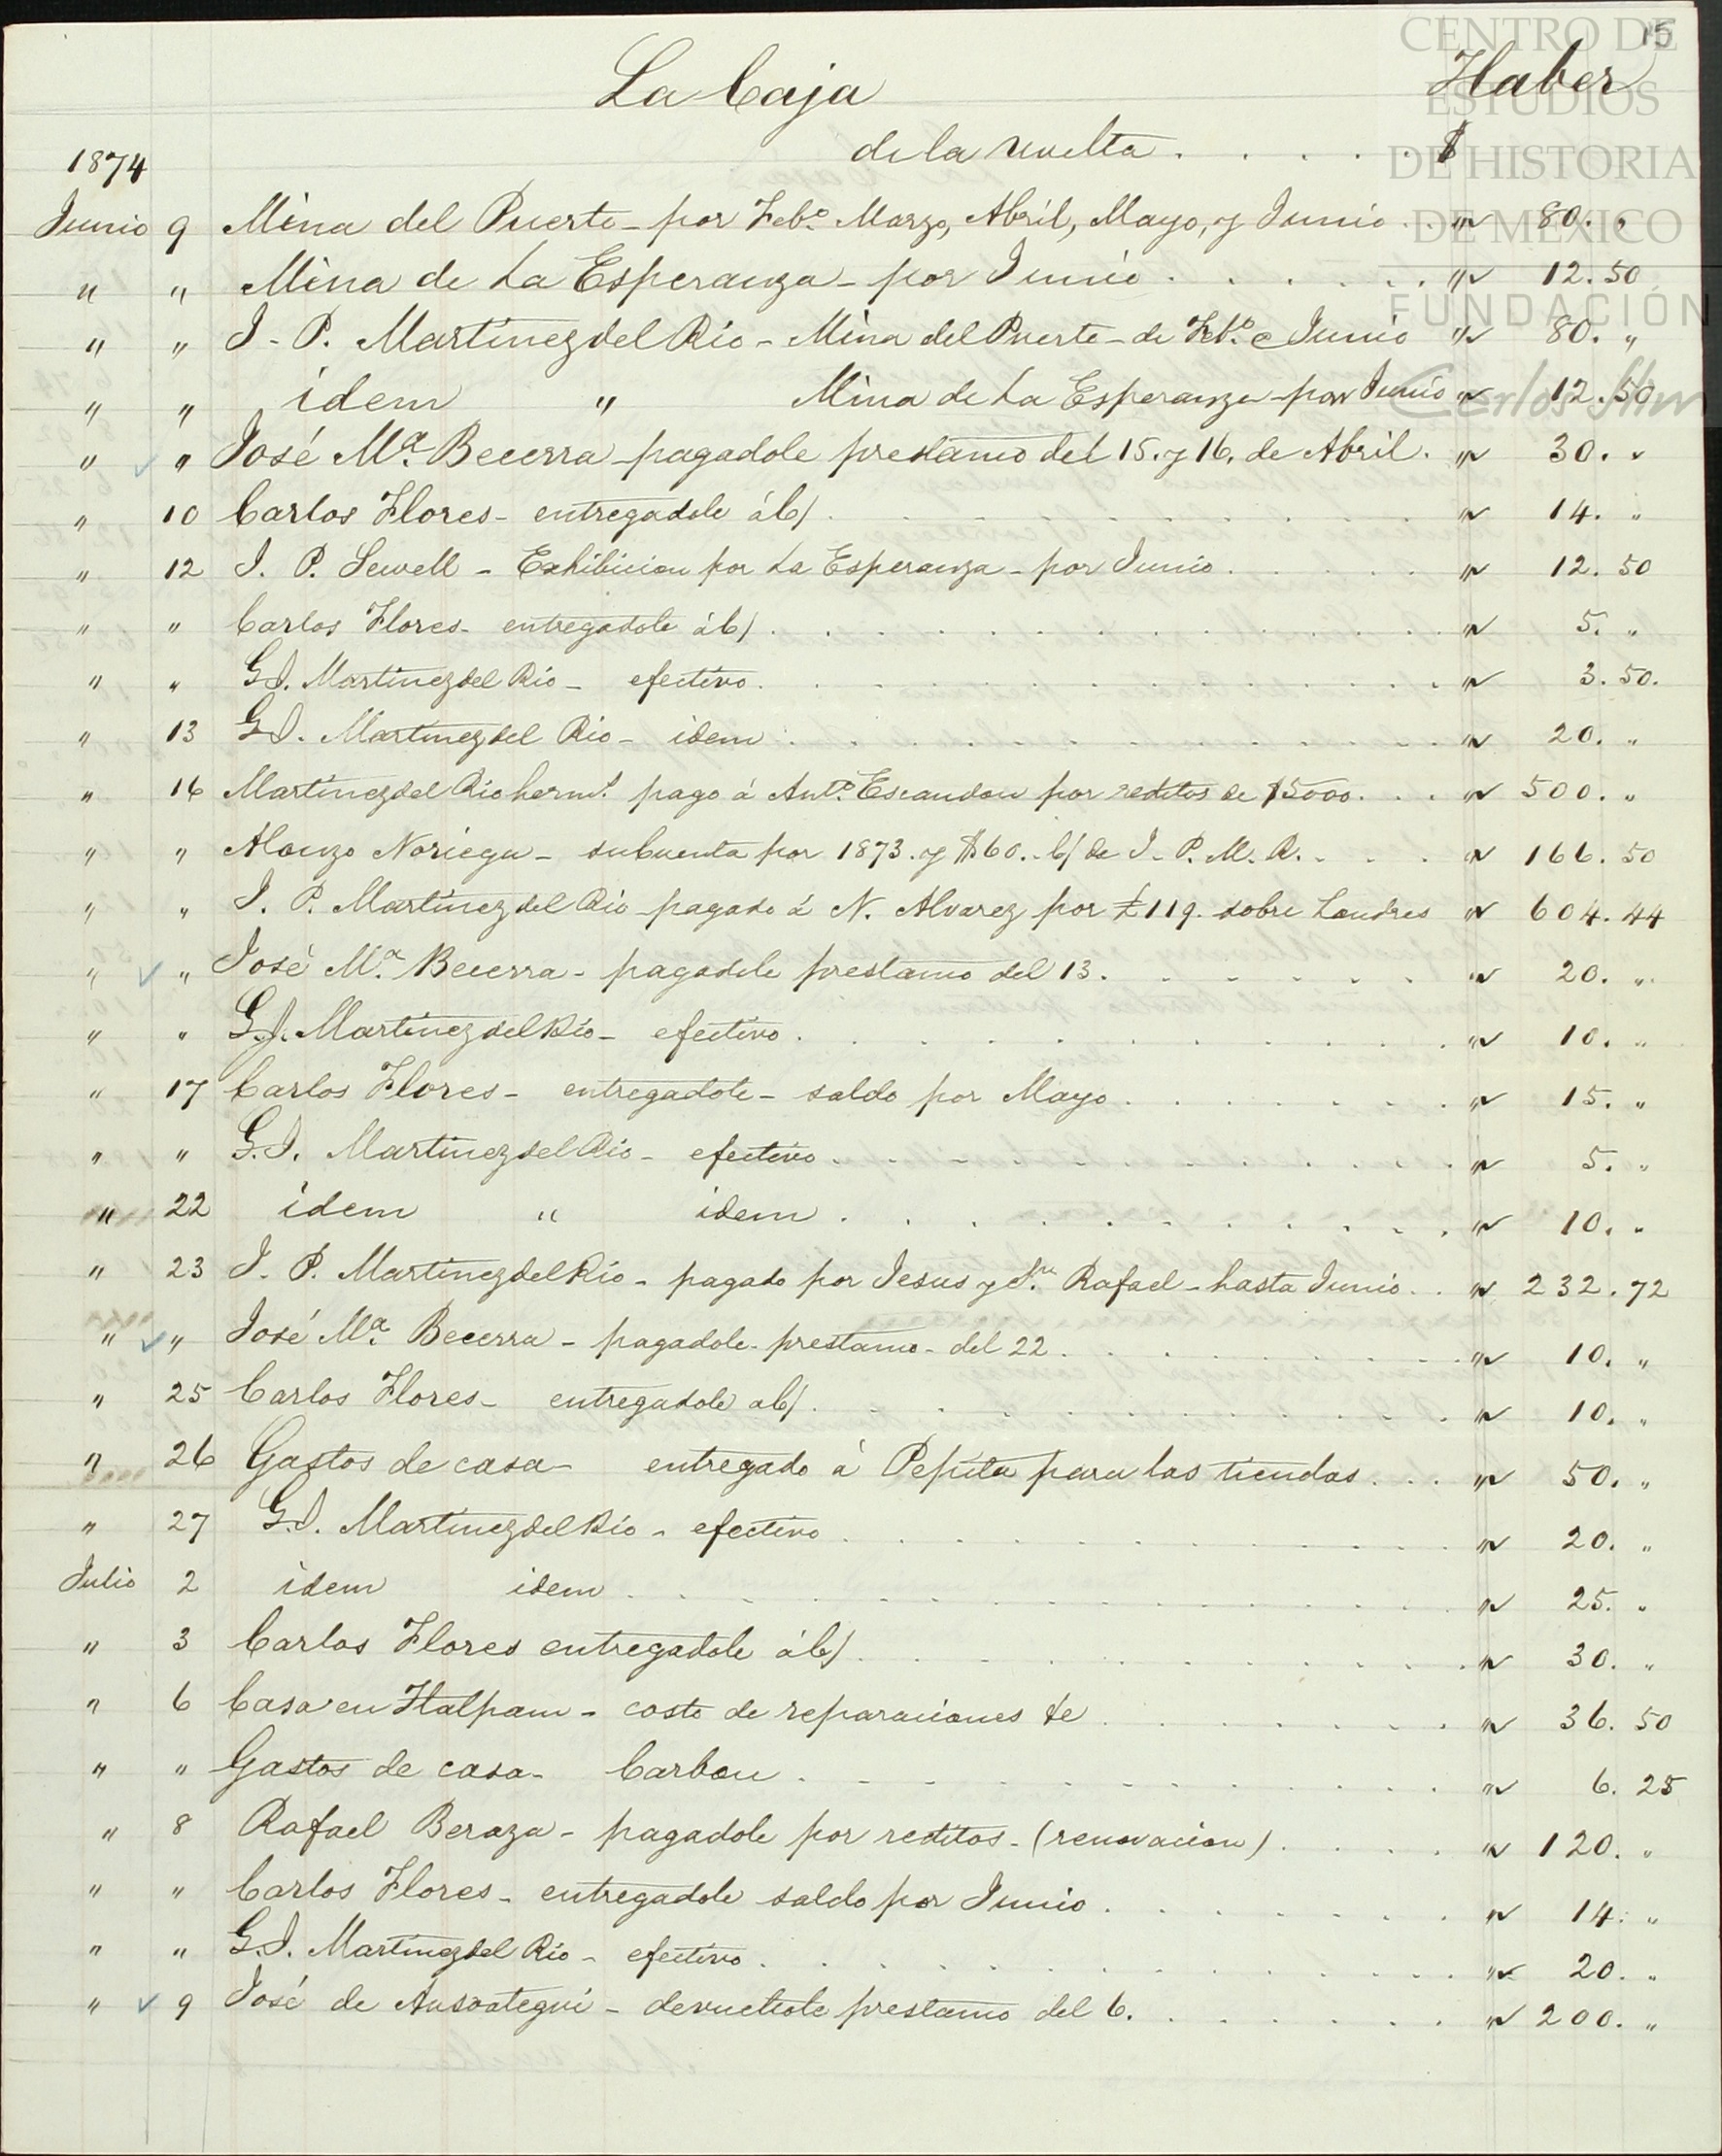 15
CENTRO DE
ESTUDIOS
DE HISTORIA
DE MÉXICO
FUNDACIÓN
Carlos Slim
La Caja Haber
de la vuelta . . . . . $
1874
Junio 9 Mina del Puerto - por Feb.o Marzo, Abril, Mayo, y Junio . . " 80. "
" " Mina de La Esperanza - por Junio . . . . . " 12. 50
" " J. P. Martinez del Rio - Mina del Puerto - de Feb.o a Junio " 80. "
" " idem " Mina de La Esperanza - por Junio " 12. 50
" " José M.a Becerra - pagadole prestamo del 15. y 16. de Abril. " 30. "
" 10 Carlos Flores - entregadole á c/ . . . . . " 14. "
" 12 J. P. Sewell - Exhibicion por La Esperanza - por Junio . . . . " 12. 50
" " Carlos Flores - entregadole á c/ . . . . . " 5. "
" " G. J. Martinez del Rio - efectivo . . . . . " 3. 50.
" 13 G. J. Martinez del Rio - idem . . . . . " 20. "
" 16 Martinez del Rio herm.s pago á Ant.o Escandon por reditos de $5000. . . " 500. "
" " Alonzo Noriega - su cuenta por 1873. y $60. c/ de J. P. M. R. . . . " 166. 50
" " J. P. Martinez del Rio - pagado á N. Alvarez por £119. sobre Londres " 604. 44
" " José M.a Becerra - pagadole prestamo del 13. . . . . . " 20. "
" " G. J. Martinez del Rio - efectivo . . . . . " 10. "
" 17 Carlos Flores - entregadole - saldo por Mayo . . . . . " 15. "
" " G. J. Martinez del Rio - efectivo . . . . . " 5. "
" 22 idem " idem . . . . . " 10. "
" 23 J. P. Martinez del Rio - pagado por Jesus y Rafael - hasta Junio . . " 232. 72
" " José M.a Becerra - pagadole - prestamo - del 22 . . . . . " 10. "
" 25 Carlos Flores - entregadole a c/ . . . . . " 10. "
" 26 Gastos de casa - entregado á Pepita para las tiendas . . . " 50. "
" 27 G. J. Martinez del Rio - efectivo . . . . . " 20. "
Julio 2 idem idem . . . . . " 25. "
" 3 Carlos Flores entregadole á c/ . . . . . " 30. "
" 6 Casa en Tlalpam - costo de reparaciones de . . . . . " 36. 50
" " Gastos de casa - Carbon . . . . . " 6. 25
" 8 Rafael Beraza - pagadole por reditos - (renovacion) . . . . " 120. "
" " Carlos Flores - entregadole saldo por Junio . . . . . " 14. "
" " G. J. Martinez del Rio - efectivo . . . . . " 20. "
" 9 José de Ansoategui - devueltole prestamo del 6. . . . . . " 200. "